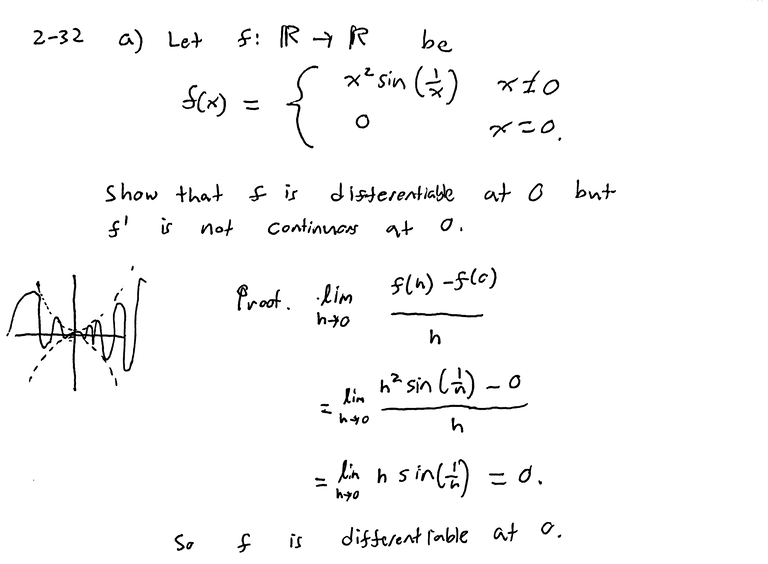 2-32 a) Let f: ℝ → ℝ be
f(x) = { x² sin(1/x) x≠0
0 x=0.
Show that f is differentiable at 0 but
f' is not continuous at 0.
Proof. lim h→0 (f(h) - f(0))/h
= lim h→0 (h² sin(1/h) - 0)/h
= lim h→0 h sin(1/h) = 0.
So f is differentiable at 0.